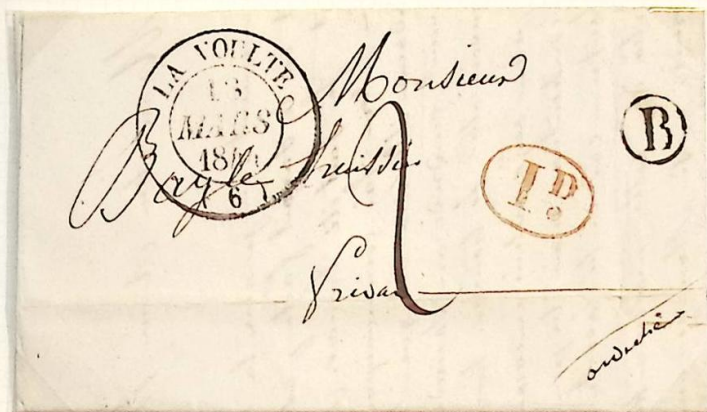 LA VOULTE
13
MARS
184
6
Monsieur
Bayle huissier
2
Privas
ardèche
1D
B